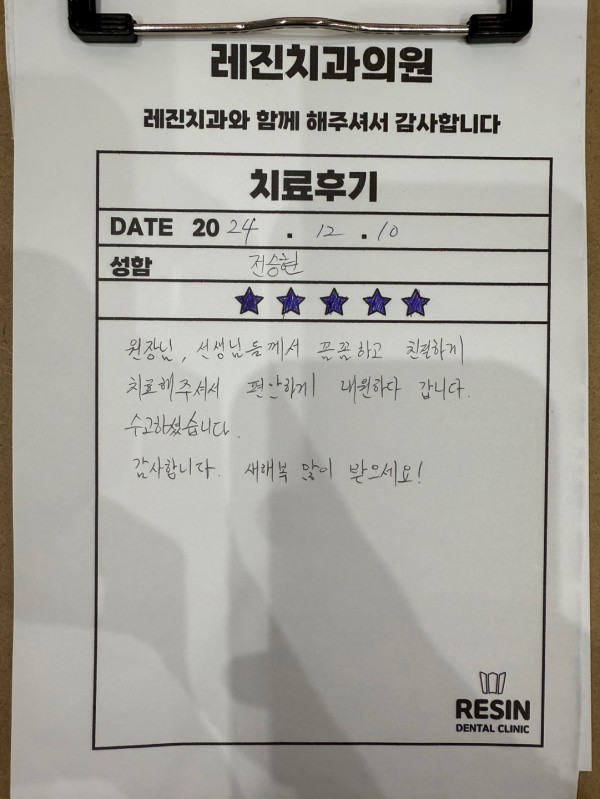 레진치과의원
레진치과와 함께 해주셔서 감사합니다
치료후기
DATE 2024 . 12 . 10
성함 전승현
원장님, 선생님들께서 꼼꼼하고 친절하게
치료해주셔서 편안하게 내원하다 갑니다.
수고하셨습니다.
감사합니다. 새해복 많이 받으세요!
RESIN
DENTAL CLINIC